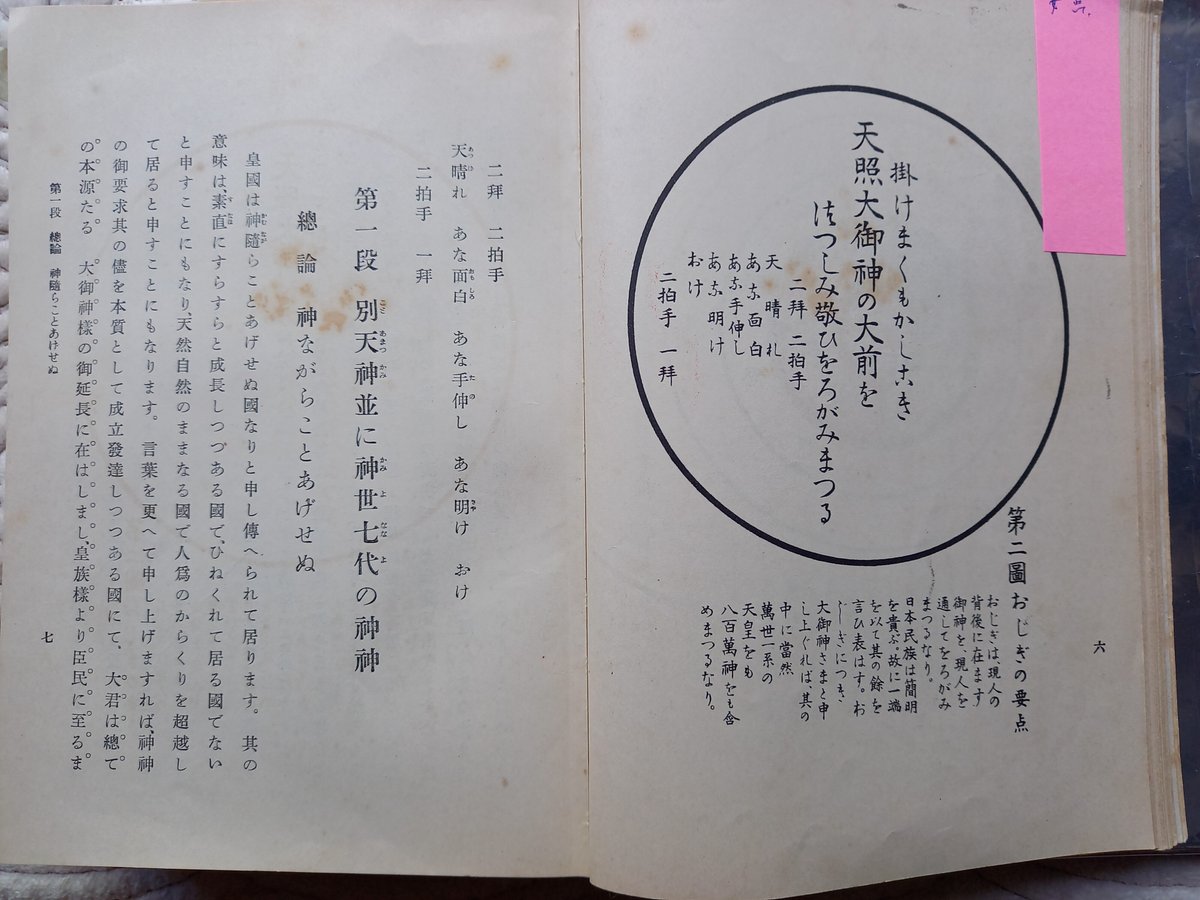 六
掛けまくもかしこき
天照大御神の大前を
つつしみ敬ひをろがみまつる
二拜 二拍手
天晴れ
あな面白
あな手伸し
あな明け
おけ
二拍手 一拜
第二圖 おじぎの要点
おじぎは、現人の
背後に在ます
御神を、現人を
通してをろがみ
まつるなり。
日本民族は簡明
を貴ぶ。故に一端
を以て其の餘を
言ひ表はす。お
じぎにつき
大御神さまと申
し上ぐれば、其の
中に當然
萬世一系の
天皇をも
八百萬神をも含
めまつるなり。
二拜 二拍手
天晴れ あな面白 あな手伸し あな明け おけ
二拍手 一拜
第一段 別天神並に神世七代の神神
總論 神ながらことあげせぬ
皇國は神隨らことあげせぬ國なりと申し傳へられて居ります。其の
意味は、素直にすらすらと成長しつづある國で、ひねくれて居る國でない
と申すことにもなり、天然自然のままなる國で人爲のからくりを超越し
て居ると申すことにもなります。言葉を更へて申し上げますれば、神神
の御要求其の儘を本質として成立發達しつつある國にて、大君は總て
の本源たる 大御神樣の御延長に在はしまし、皇族樣より臣民に至るま
第一段 總論 神隨らことあげせぬ
七